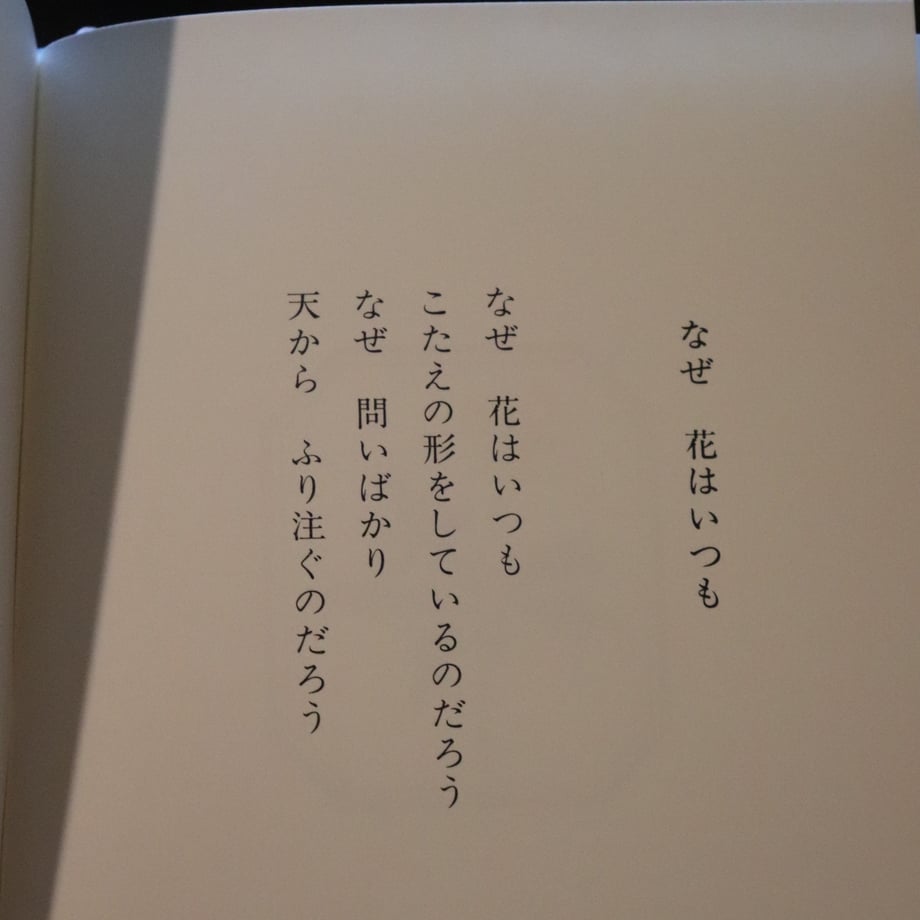 なぜ　花はいつも
なぜ　花はいつも
こたえの形をしているのだろう
なぜ　問いばかり
天から　ふり注ぐのだろう